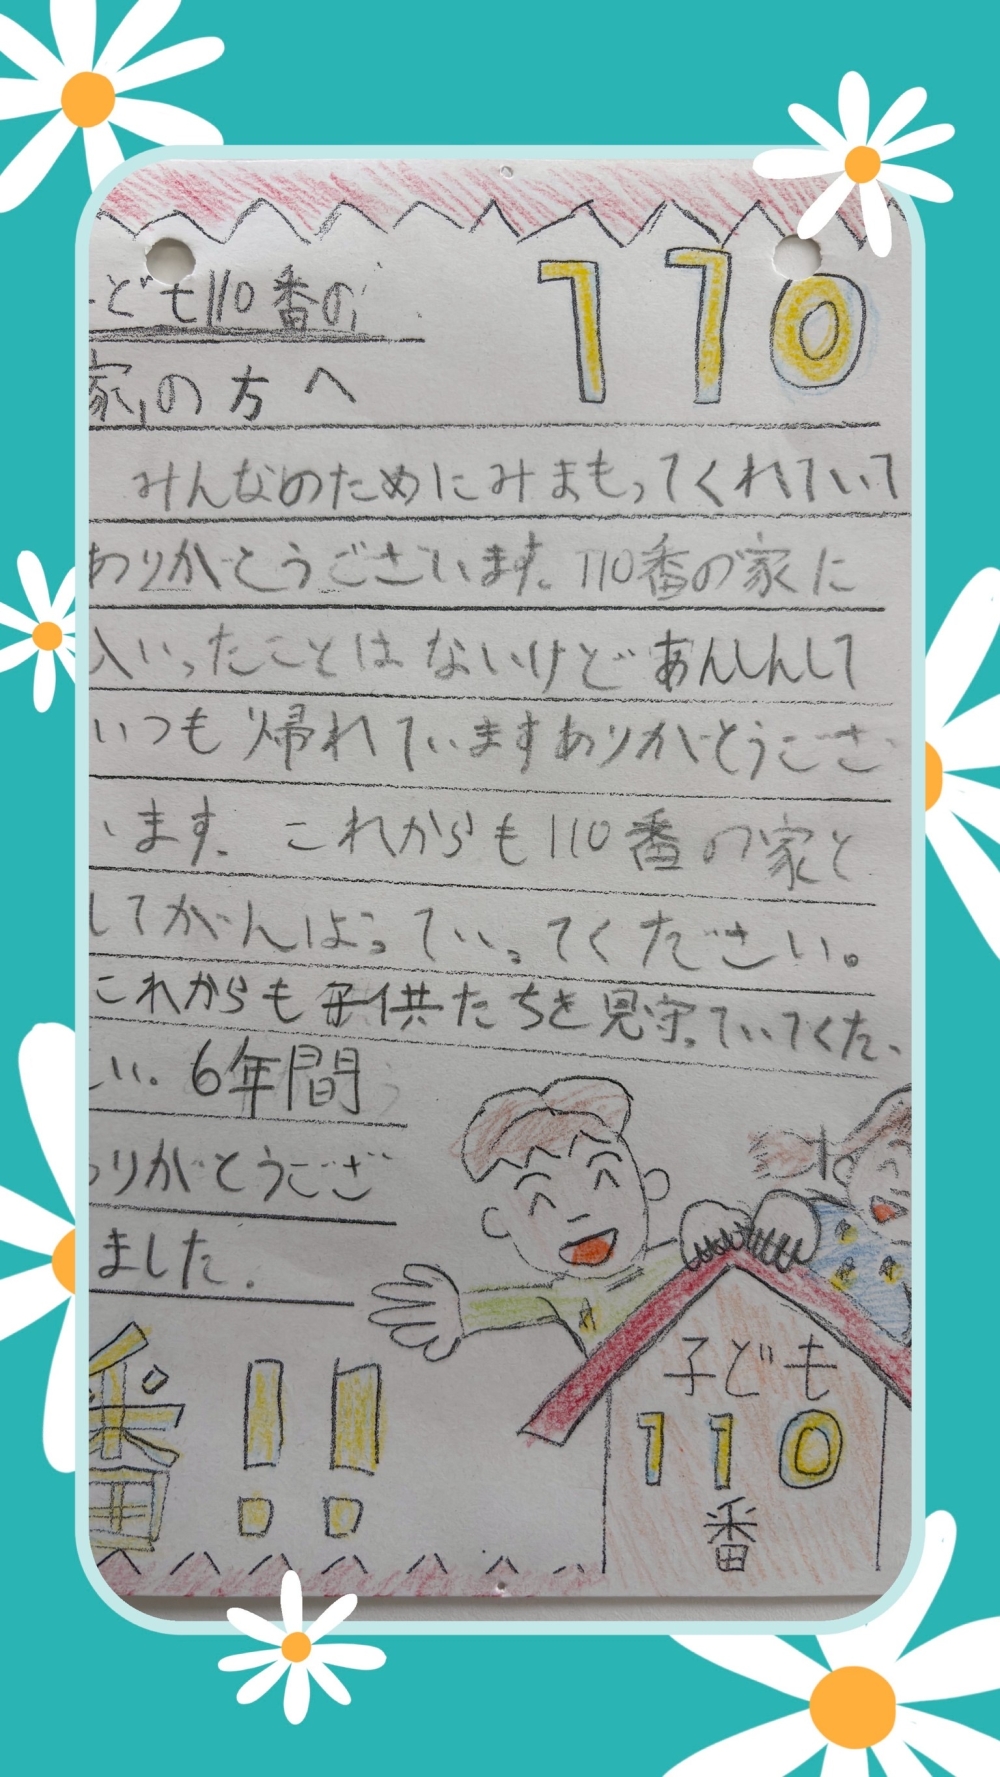 ども110番の
家」の方へ
110
みんなのためにみまもってくれていて
ありがとうございます。110番の家に
入いったことはないけどあんしんして
いつも帰れていますありがとうござ
います。これからも110番の家と
してがんばっていってください。
これからも子供たちを見守っていてくだ
い。6年間
りがとうござ
ました。
番!!
子ども
110
番